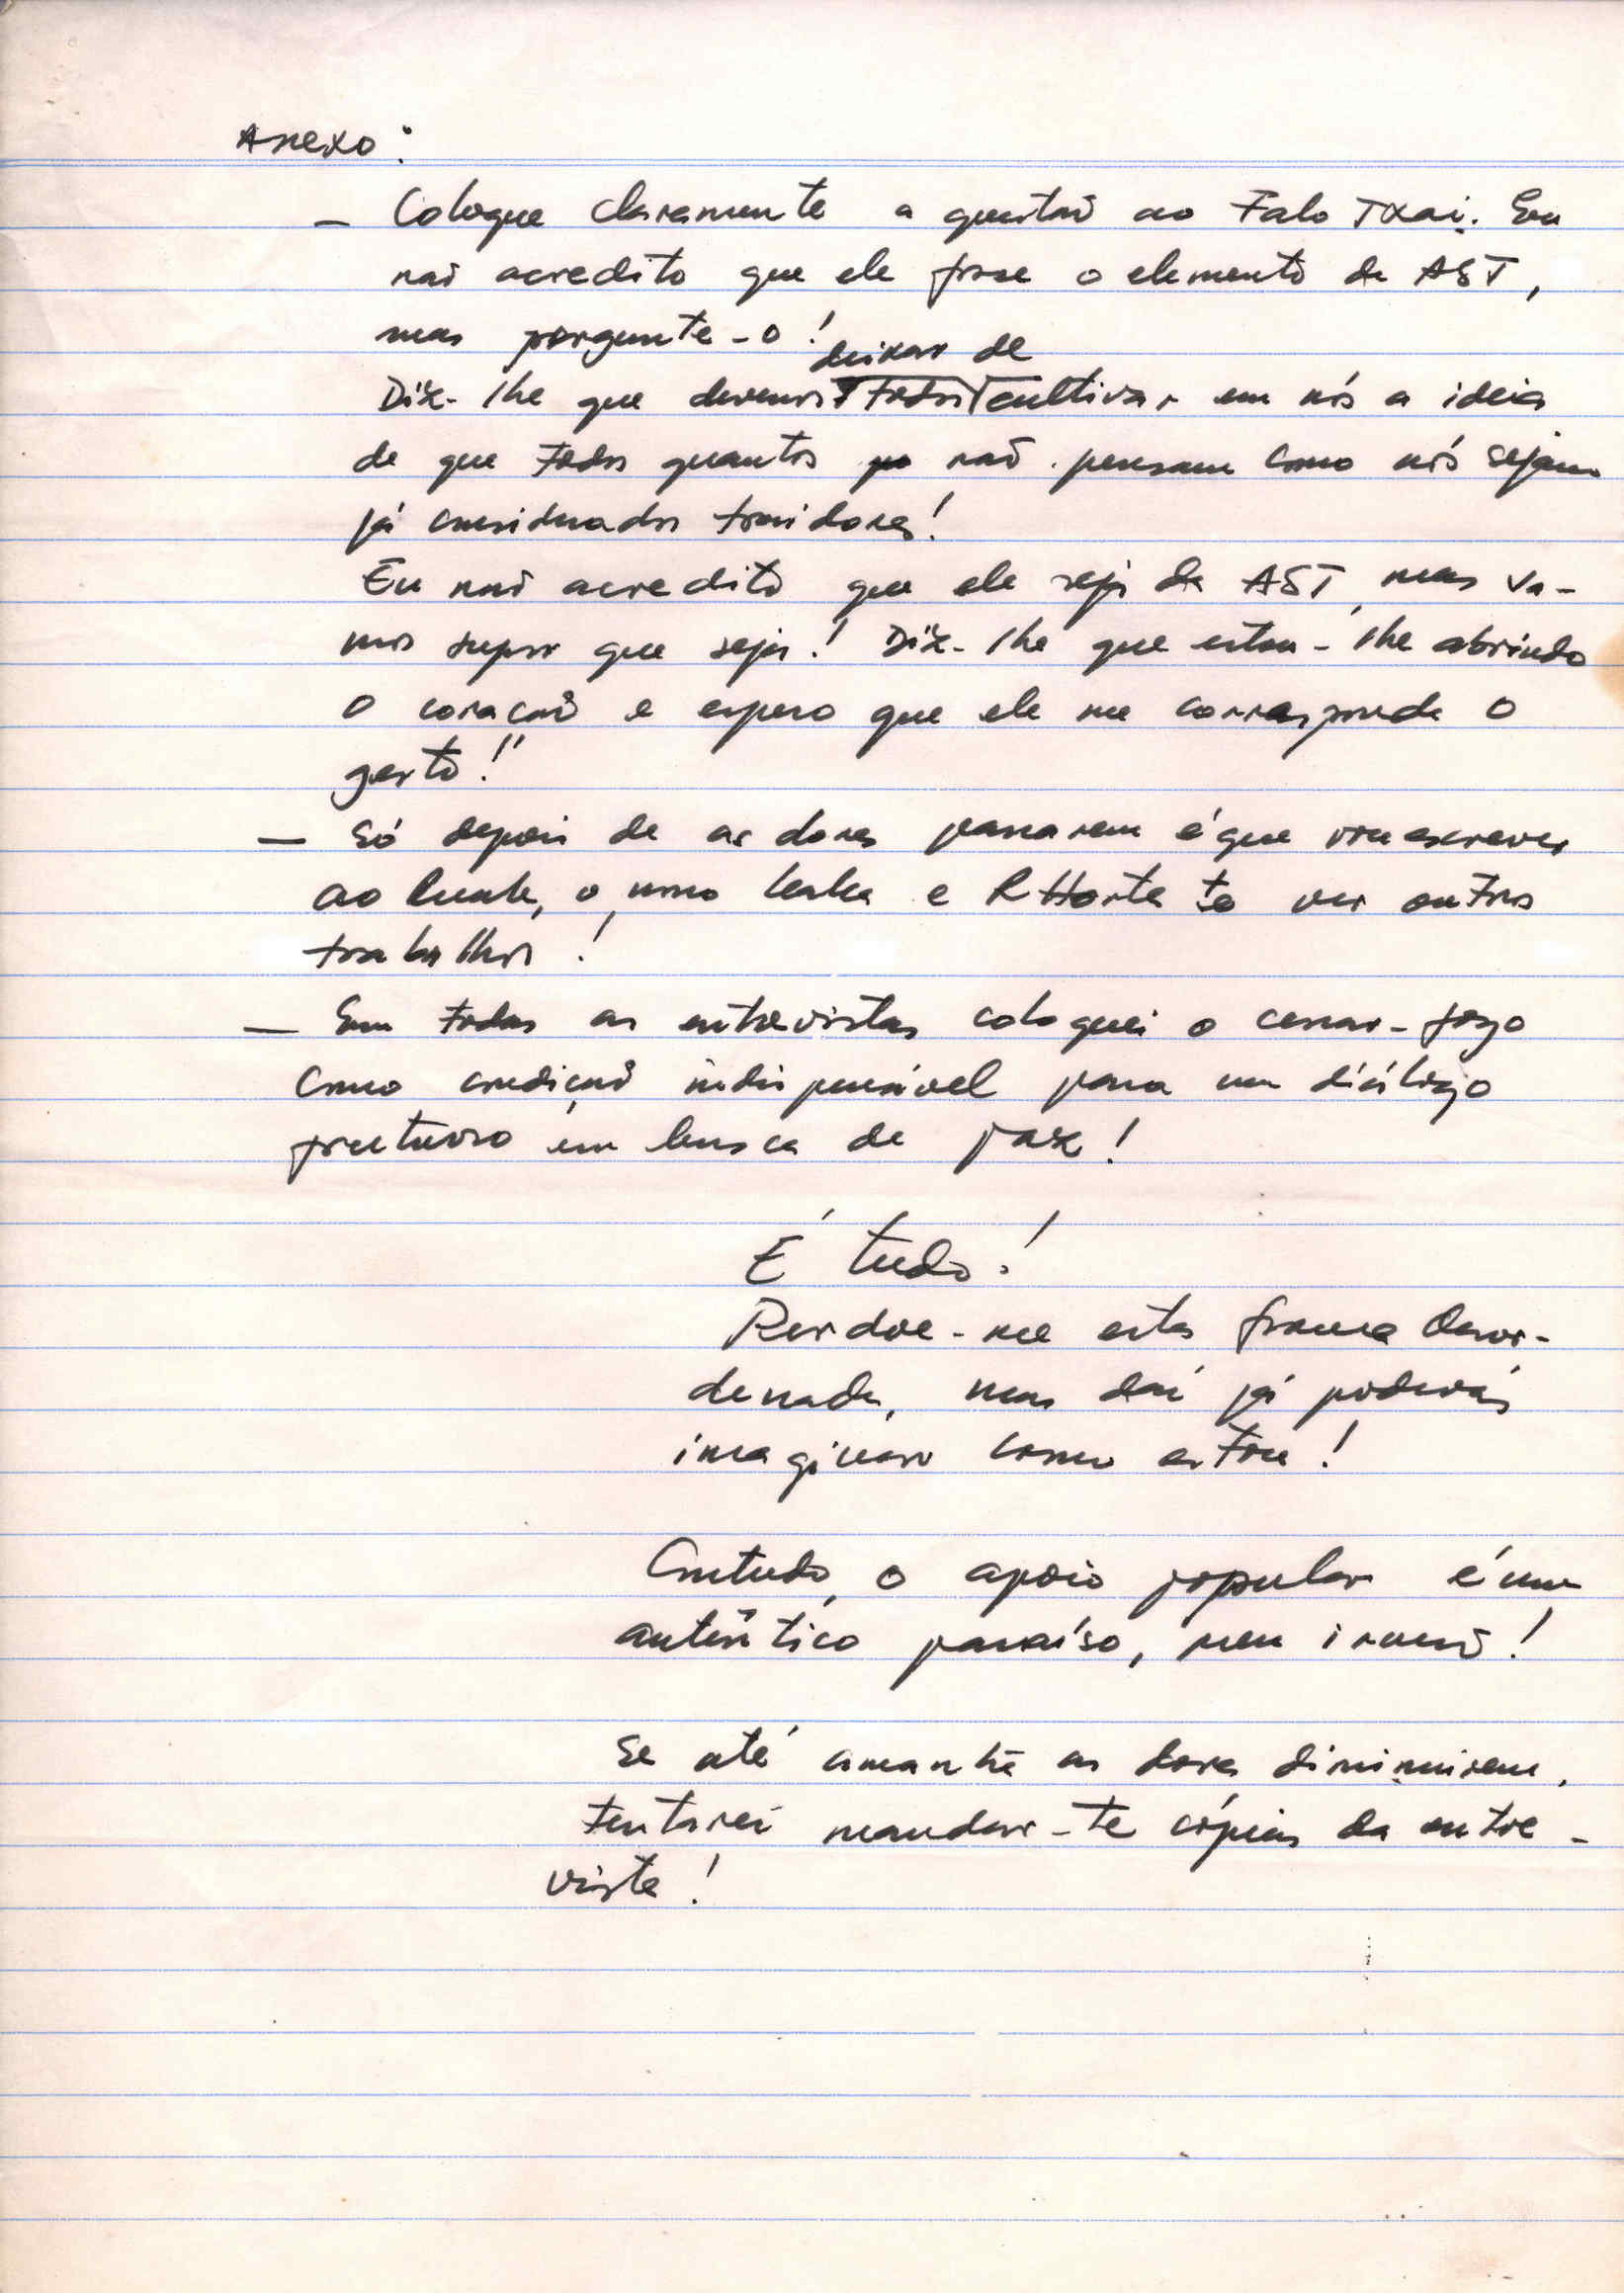 Anexo:
– Coloque claramente a questão ao Falo Txai. Eu
não acredito que ele fosse o elemento da AST,
mas pergunte-o!
deixar de
Diz-lhe que devemos todos cultivar em nós a ideia
de que todos quantos não pensam como nós sejam
já considerados traidores!
Eu não acredito que ele seja da AST, mas va-
mos supor que seja! Diz-lhe que estou-lhe abrindo
o coração e espero que ele me corresponda o
gesto!"
– Só depois de as dores passarem é que vou escrever
ao e R Horta to ver outros
trabalhos!
– Em todas as entrevistas coloquei o cessar-fogo
como condição indispensável para um diálogo
frutuoso em busca de paz!
É tudo!
Perdoe-me esta forma desor-
denada, mas daí já poderás
imaginar como estou!
Contudo, o apoio popular é um
autêntico paraíso, meu irmão!
Se até amanhã as dores diminuirem,
tentarei mandar-te cópias da entre-
vista!